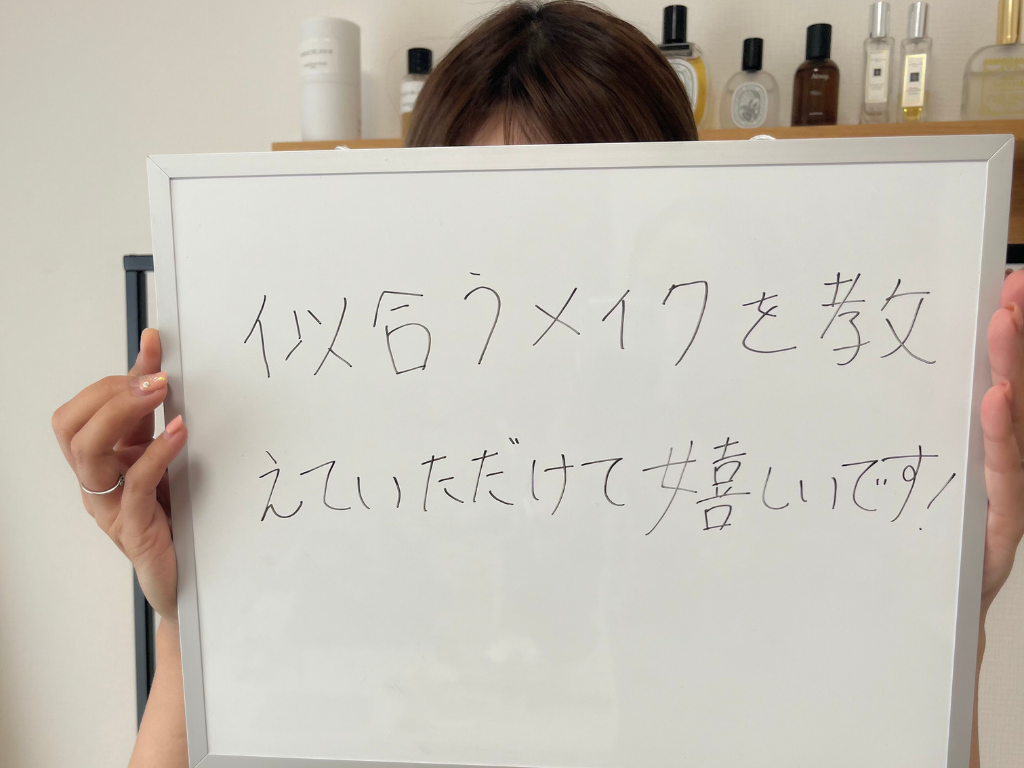 似合うメイクを教
えていただけて嬉しいです!
Aesop